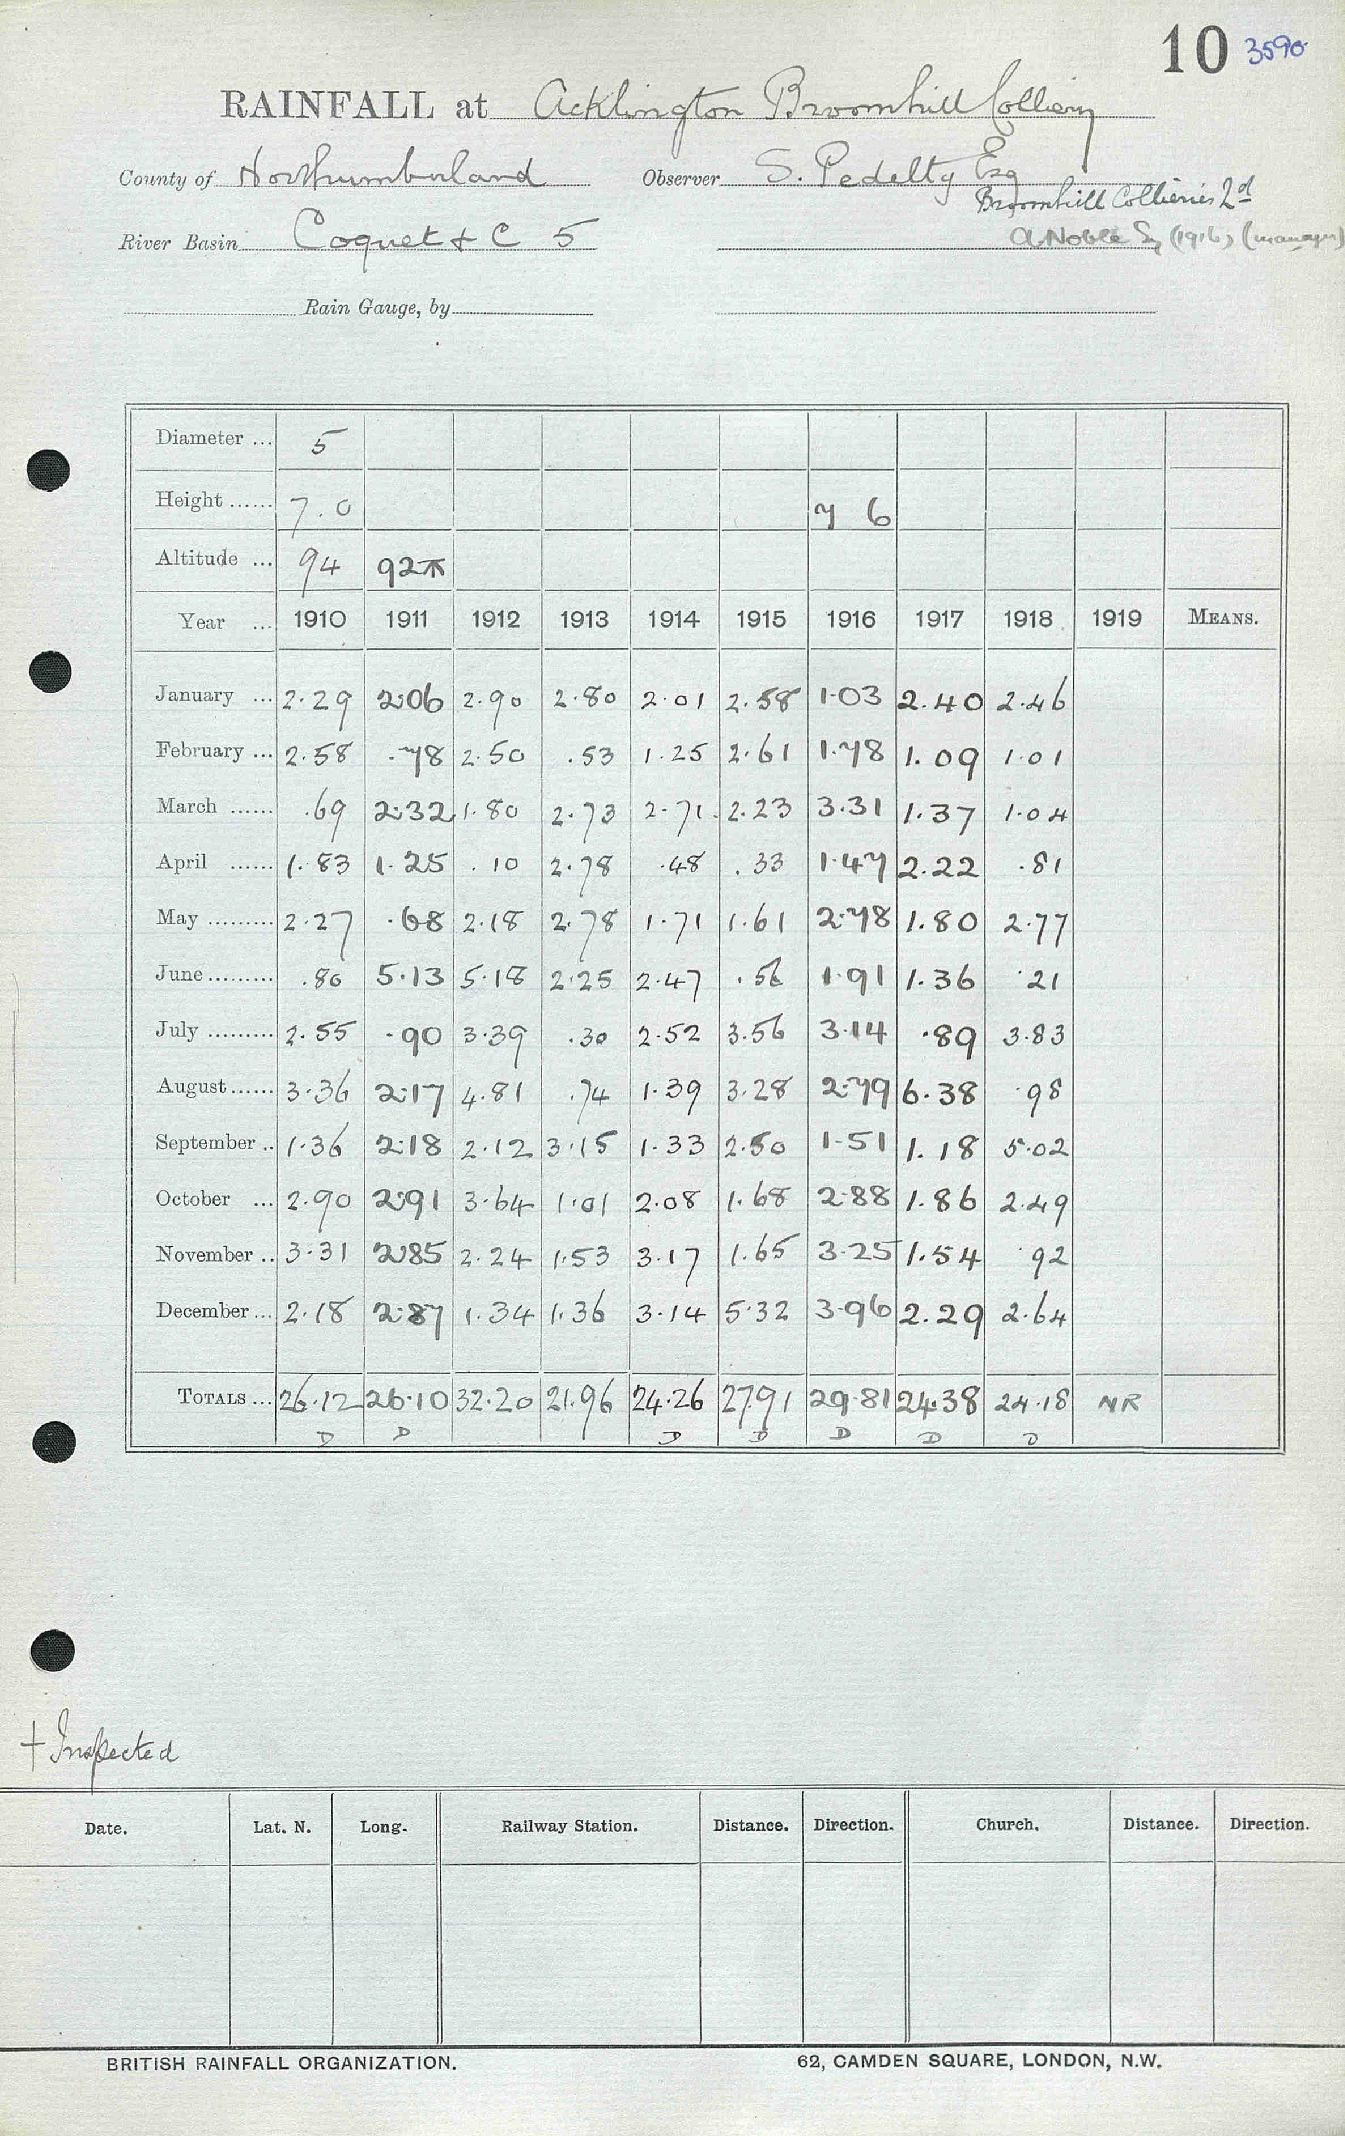 10 3590
RAINFALL at Acklington Broomhill Colliery
County of Northumberland Observer S. Pedelty Esq
Broomhill Collieries Ld
River Basin Coquet & C 5 A Noble Esq (1916) (manager)
Rain Gauge, by
Diameter ... 5
Height ...... 7.0 7 6
Altitude ... 94 92
Year ... 1910 1911 1912 1913 1914 1915 1916 1917 1918 1919 MEANS.
January ... 2.29 2.06 2.90 2.80 2.01 2.58 1.03 2.40 2.46
February ... 2.58 .78 2.50 .53 1.25 2.61 1.78 1.09 1.01
March ...... .69 2.32 1.80 2.73 2.71 2.23 3.31 1.37 1.04
April ...... 1.83 1.25 .10 2.78 .48 .33 1.47 2.22 .81
May ......... 2.27 .68 2.18 2.78 1.71 1.61 2.78 1.80 2.77
June ......... .80 5.13 5.18 2.25 2.47 .56 1.91 1.36 .21
July ......... 2.55 .90 3.39 .30 2.52 3.56 3.14 .89 3.83
August ...... 3.36 2.17 4.81 .74 1.39 3.28 2.79 6.38 .98
September .. 1.36 2.18 2.12 3.15 1.33 2.50 1.51 1.18 5.02
October ... 2.90 2.91 3.64 1.01 2.08 1.68 2.88 1.86 2.49
November .. 3.31 2.85 2.24 1.53 3.17 1.65 3.25 1.54 .92
December ... 2.18 2.87 1.34 1.36 3.14 5.32 3.96 2.29 2.64
TOTALS ... 26.12 26.10 32.20 21.96 24.26 27.91 29.81 24.38 24.18 NR
D D D D D D D
+ Inspected
Date. Lat. N. Long. Railway Station. Distance. Direction. Church. Distance. Direction.
BRITISH RAINFALL ORGANIZATION. 62, CAMDEN SQUARE, LONDON, N.W.